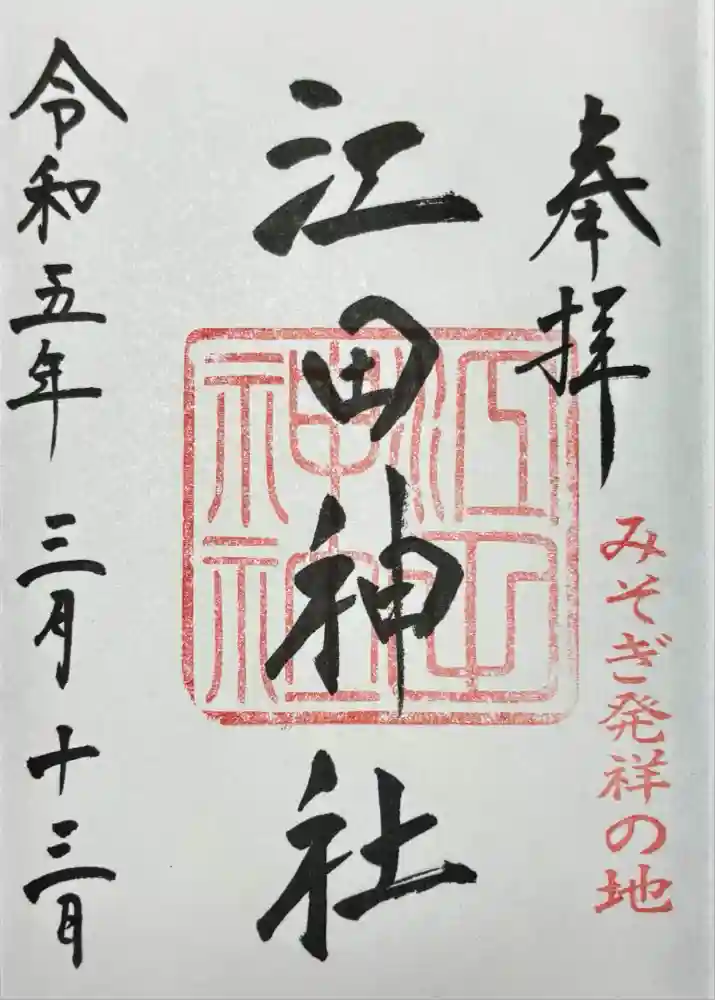 奉拝
みそぎ発祥の地
江田神社
江田神社
令和五年 三月 十三日